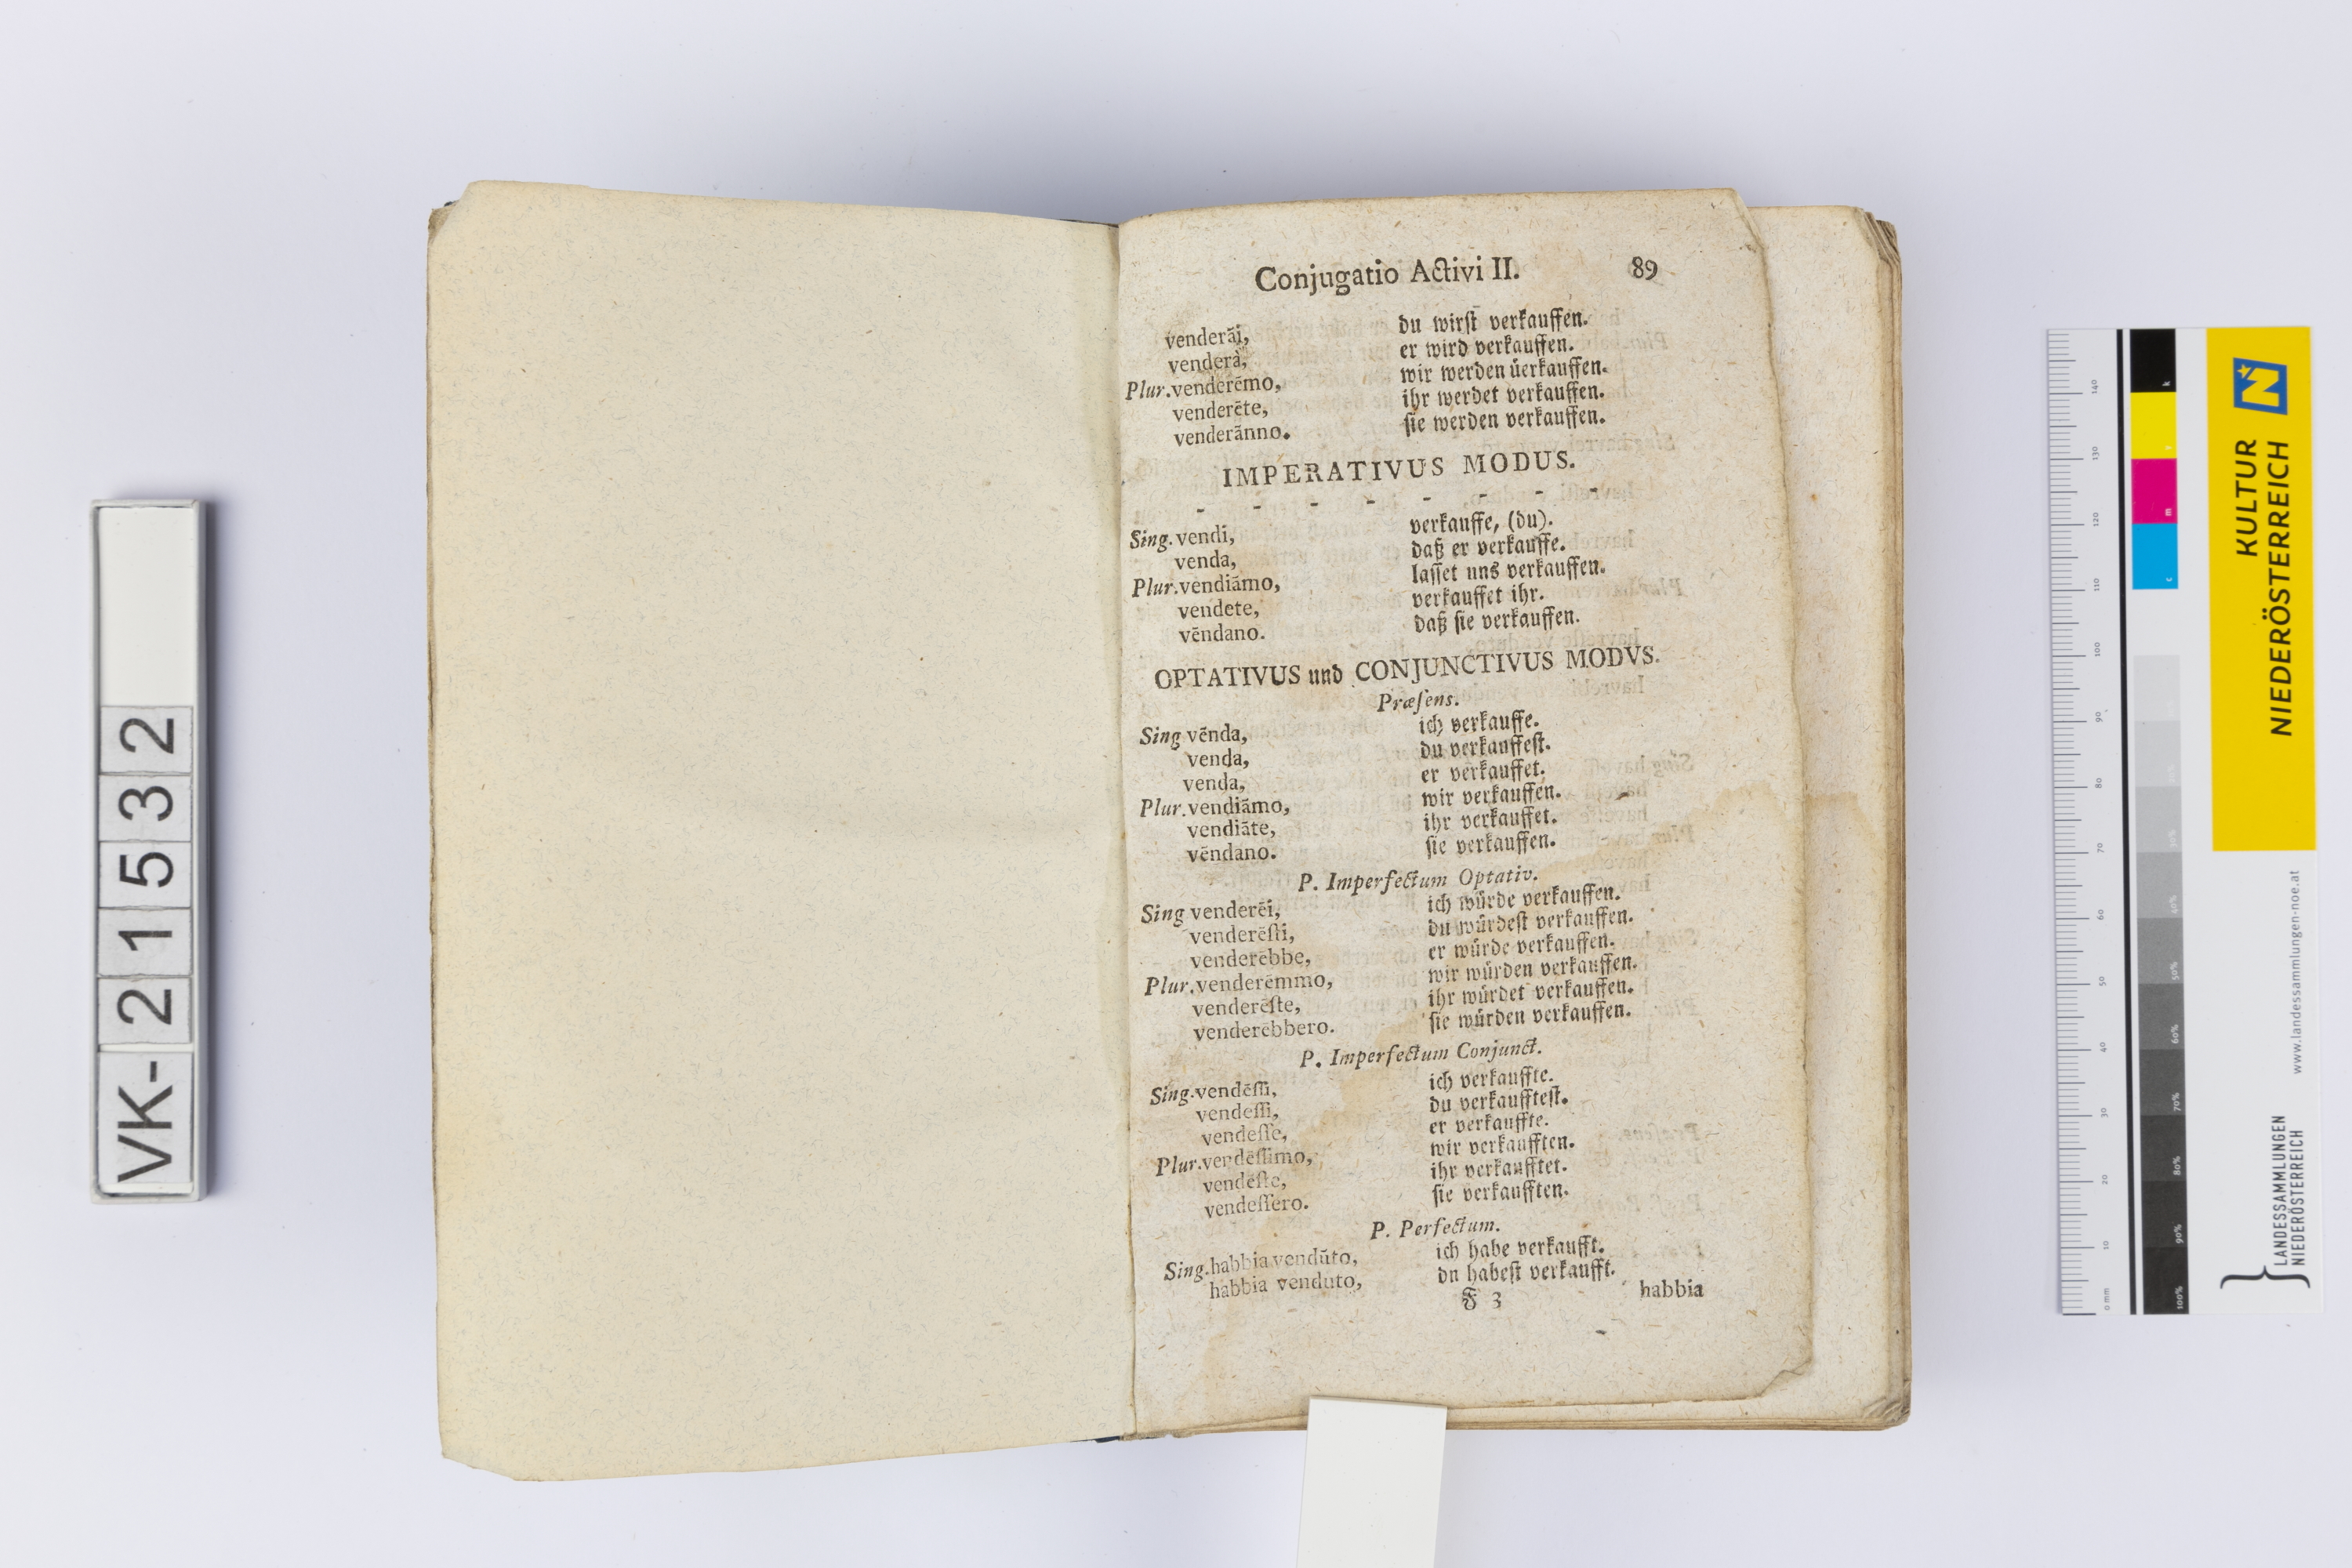 VK-21532
Conjugatio Activi II. 89
venderāi, du wirſt verkauffen.
venderà, er wird verkauffen.
Plur. venderēmo, wir werden üerkauffen.
venderēte, ihr werdet verkauffen.
venderānno. ſie werden verkauffen.
IMPERATIVUS MODUS.
- - - - - - - -
Sing. vendi, verkauffe, (du).
venda, daß er verkauffe.
Plur. vendiāmo, laſſet uns verkauffen.
vendete, verkauffet ihr.
vēndano. daß ſie verkauffen.
OPTATIVUS und CONJUNCTIVUS MODVS.
Præſens.
Sing vēnda, ich verkauffe.
venda, du verkauffeſt.
venda, er verkauffet.
Plur. vendiāmo, wir verkauffen.
vendiāte, ihr verkauffet.
vēndano. ſie verkauffen.
P. Imperfectum Optativ.
Sing venderēi, ich würde verkauffen.
venderēſti, du würdeſt verkauffen.
venderēbbe, er würde verkauffen.
Plur. venderēmmo, wir würden verkauffen.
venderēſte, ihr würdet verkauffen.
venderēbbero. ſie würden verkauffen.
P. Imperfectum Conjunct.
Sing. vendēſſi, ich verkauffte.
vendeſſi, du verkaufſteſt.
vendeſſe, er verkauffte.
Plur. vendēſſimo, wir verkaufften.
vendeſte, ihr verkaufftet.
vendeſſero. ſie verkaufften.
P. Perfectum.
Sing. habbia vendūto, ich habe verkaufft.
habbia venduto, dn habeſt verkaufft.
F 3 habbia
KULTUR
NIEDERÖSTERREICH
www.landessammlungen-noe.at
LANDESSAMMLUNGEN
NIEDERÖSTERREICH
0 mm 10 20 30 40 50 60 70 80 90 100 110 120 130 140
k
y
m
c
40% 50% 60% 70% 80% 90% 100%